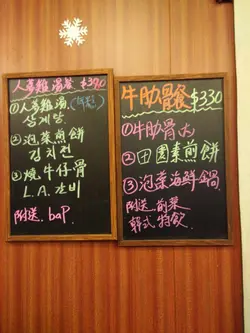 人蔘雞湯餐 $390
①人蔘雞湯
삼계탕
②泡菜煎餅
김치전
③燒牛仔骨
L.A.갈비
附送.baP
牛肋骨餐 $330
①牛肋骨
②田園素煎餅
③泡菜海鮮鍋
附送.前菜
韓式特飲